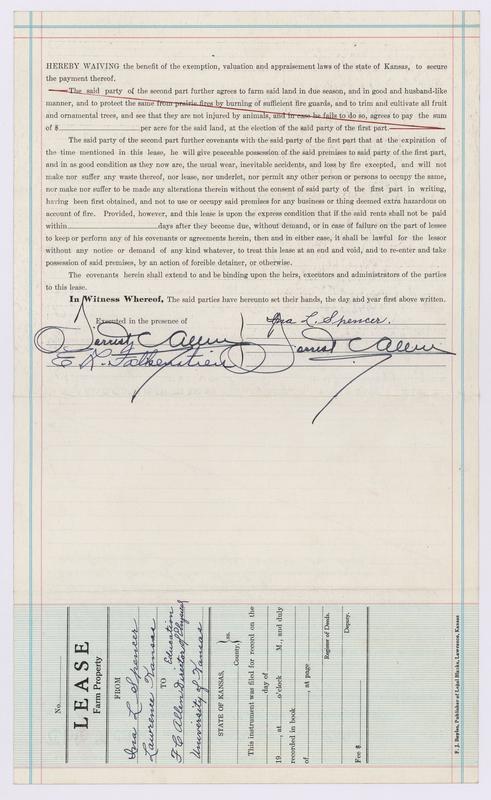 HEREBY WAIVING the benefit of the exemption, valuation and appraisement laws of the state of Kansas, to secure
the payment thereof.
The said party of the second part further agrees to farm said land in due season, and in good and husband-like
manner, and to protect the same from prairie fires by burning of sufficient fire guards, and to trim and cultivate all fruit
and ornamental trees, and see that they are not injured by animals, and in case he fails to do so, agrees to pay the sum
of $ per acre for the said land, at the election of the said party of the first part.
The said party of the second part further covenants with the said party of the first part that at the expiration of
the time mentioned in this lease, he will give peaceable possession of the said premises to said party of the first part,
and in as good condition as they now are, the usual wear, inevitable accidents, and loss by fire excepted, and will not
make nor suffer any waste thereof, nor lease, nor underlet, nor permit any other person or persons to occupy the same,
nor make nor suffer to be made any alterations therein without the consent of said party of the first part in writing,
having been first obtained, and not to use or occupy said premises for any business or thing deemed extra hazardous on
account of fire. Provided, however, and this lease is upon the express condition that if the said rents shall not be paid
within days after they become due, without demand, or in case of failure on the part of lessee
to keep or perform any of his covenants or agreements herein, then and in either case, it shall be lawful for the lessor
without any notice or demand of any kind whatever, to treat this lease at an end and void, and to re-enter and take
possession of said premises, by an action of forcible detainer, or otherwise.
The covenants herein shall extend to and be binding upon the heirs, executors and administrators of the parties
to this lease.
In Witness Whereof, The said parties have hereunto set their hands, the day and year first above written.
Executed in the presence of
Ina L. Spencer.
Forrest C Allen
Forrest C Allen
E. K. Falkenstien
No.
LEASE
Farm Property
FROM
Ina L Spencer
Lawrence Kansas
TO
Education
F C Allen Director of Physical
University of Kansas
STATE OF KANSAS,
County, } ss.
This instrument was filed for record on the
day of
19 , at o'clock M., and duly
recorded in book
of , at page
Register of Deeds.
Deputy.
Fee $
F. J. Boyles, Publisher of Legal Blanks, Lawrence, Kansas